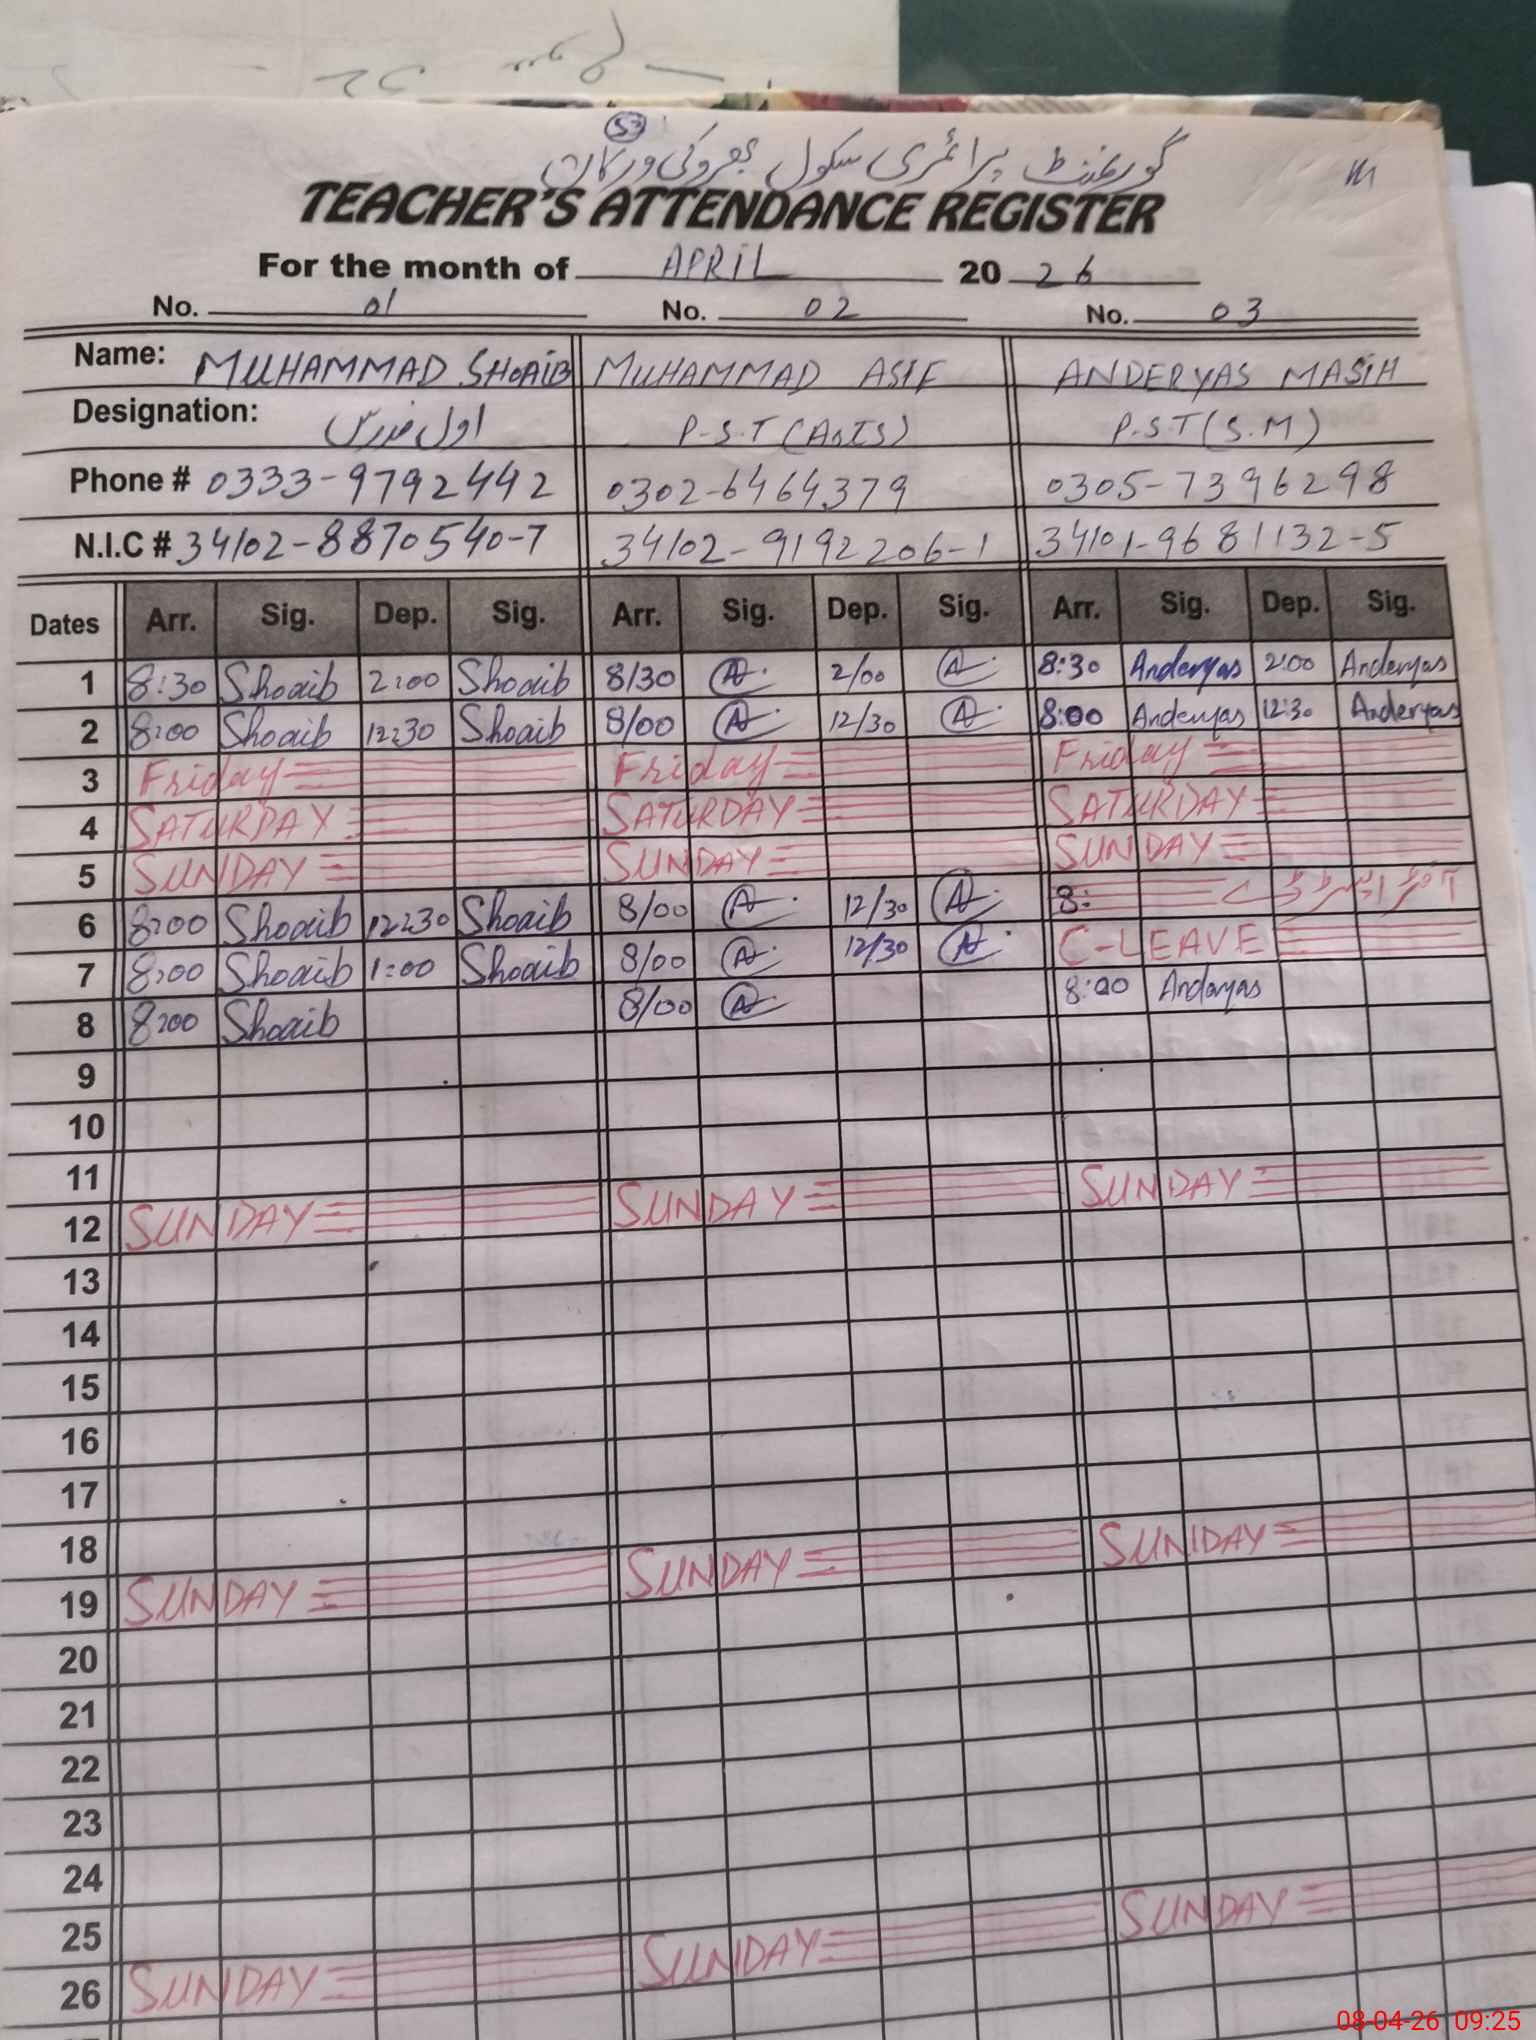 53
گورنمنٹ پرائمری سکول بھروکی ورکاں
TEACHER'S ATTENDANCE REGISTER
For the month of APRIL 20 26
No. 01 No. 02 No. 03
Name: MUHAMMAD SHOAIB MUHAMMAD ASIF ANDERYAS MASIH
Designation: اول مدرس P-S-T (Arts) P.S.T (S.M)
Phone # 0333-9792442 0302-6464379 0305-7396298
N.I.C # 34102-8870540-7 34102-9192206-1 34101-9681132-5
Dates Arr. Sig. Dep. Sig. Arr. Sig. Dep. Sig. Arr. Sig. Dep. Sig.
1 8:30 Shoaib 2:00 Shoaib 8/30 A 2/00 A 8:30 Anderyas 2:00 Anderyas
2 8:00 Shoaib 12:30 Shoaib 8/00 A 12/30 A 8:00 Anderyas 12:30 Anderyas
3 Friday Friday Friday
4 SATURDAY SATURDAY SATURDAY
5 SUNDAY SUNDAY SUNDAY
6 8:00 Shoaib 12:30 Shoaib 8/00 A 12/30 A 8:
7 8:00 Shoaib 1:00 Shoaib 8/00 A 12/30 A C-LEAVE
8 8:00 Shoaib 8/00 A 8:00 Anderyas
9
10
11
12 SUNDAY SUNDAY SUNDAY
13
14
15
16
17
18
19 SUNDAY SUNDAY SUNDAY
20
21
22
23
24
25
26 SUNDAY SUNDAY SUNDAY
08-04-26 09:25